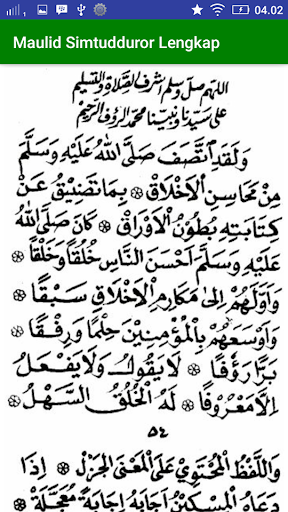 04.02
Maulid Simtudduror Lengkap
اللهم صل وسلم اشرف الصلاة والتسليم
على سيدنا ونبينا محمد الرؤف الرحيم
وَلَقَدِ اتَّصَفَ صَلَّى اللهُ عَلَيْهِ وَسَلَّمَ
مِنْ مَحَاسِنِ الْأَخْلَاقِ ۞ بِمَا تَضِيْقُ عَنْ
كِتَابَتِهِ بُطُوْنُ الْأَوْرَاقِ ۞ كَانَ صَلَّى اللهُ
عَلَيْهِ وَسَلَّمَ أَحْسَنَ النَّاسِ خُلُقًا وَخَلْقًا ۞
وَأَوَّلَهُمْ إِلَى مَكَارِمِ الْأَخْلَاقِ سَبْقًا ۞
وَأَوْسَعَهُمْ بِالْمُؤْمِنِيْنَ حِلْمًا وَرِفْقًا ۞
بَرًّا رَؤُفًا ۞ لَا يَقُوْلُ وَلَا يَفْعَلُ
إِلَّا مَعْرُوْفًا ۞ لَهُ الْخُلُقُ السَّهْلُ ۞
٥٤
وَاللَّفْظُ الْمُحْتَوِيْ عَلَى الْمَعْنَى الْجَزْلِ ۞ إِذَا
دَعَاهُ الْمِسْكِيْنُ أَجَابَهُ إِجَابَةً مُعَجَّلَةً ۞